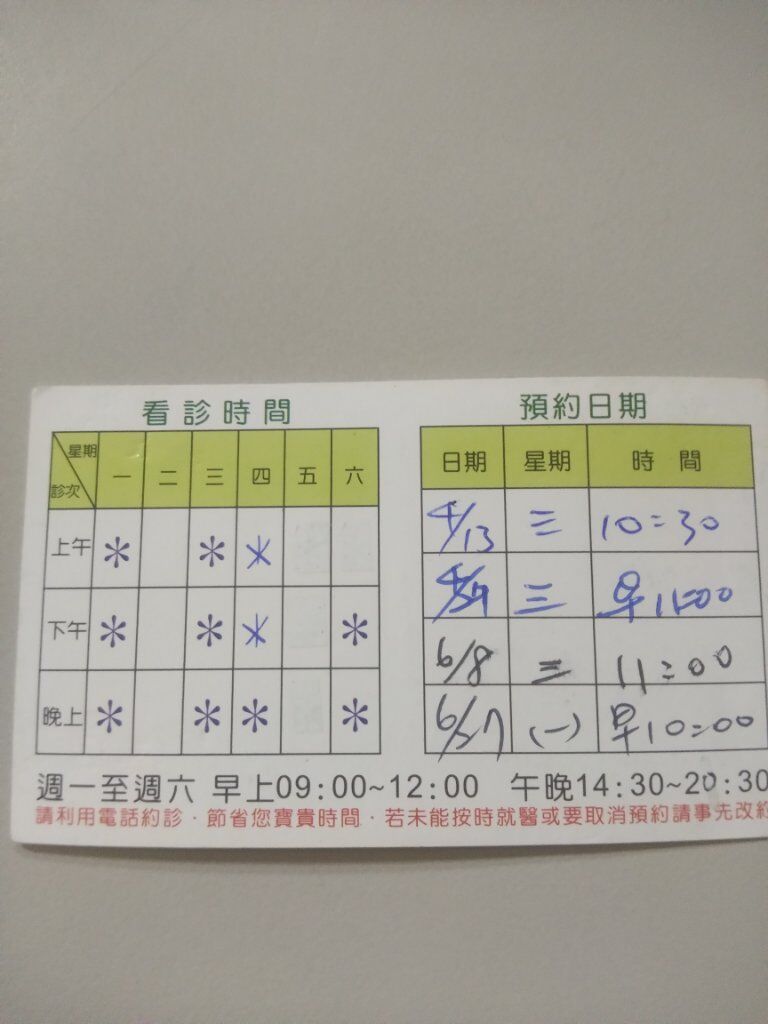 看診時間
星期 一 二 三 四 五 六
診次
上午 * * *
下午 * * * *
晚上 * * * *
預約日期
日期 星期 時間
4/13 三 10:30
4/27 三 早11:00
6/8 三 11:00
6/27 (一) 早10:00
週一至週六 早上09:00~12:00 午晚14:30~20:30
請利用電話約診·節省您寶貴時間·若未能按時就醫或要取消預約請事先改約